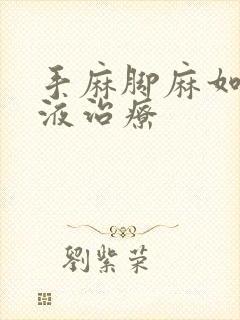 手麻脚麻如
液治疗
劉紫荣